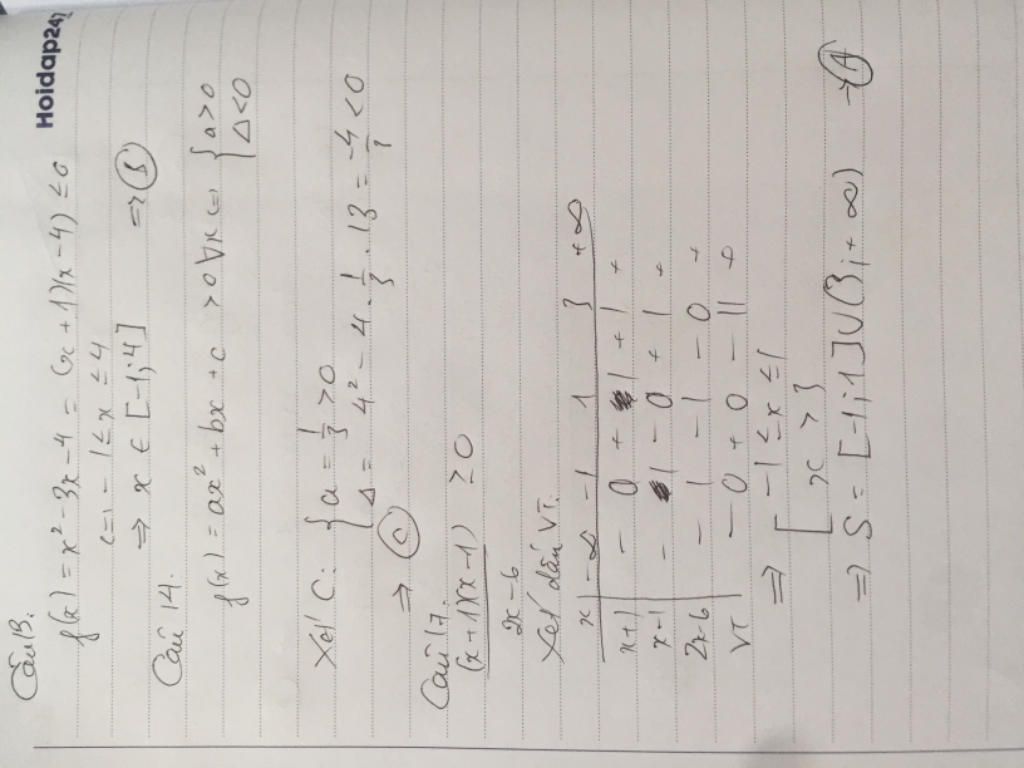 Hoidap247
Câu 13.
f(x) = x² - 3x - 4 = (x + 1)(x - 4) ≤ 0
<=> - 1 ≤ x ≤ 4
=> x ∈ [-1; 4] => B
Câu 14.
f(x) = ax² + bx + c > 0 ∀x <=> { a > 0
Δ < 0
Xét C: { a = 1/3 > 0
Δ = 4² - 4 . 1/3 . 13 = -4/3 < 0
=> C
Câu 17.
(x + 1)(x - 1) / 2x - 6 ≥ 0
Xét dấu VT.
x | -∞ -1 1 3 +∞
x+1 | - 0 + | + | +
x-1 | - | - 0 + | +
2x-6 | - | - | - 0 +
VT | - 0 + 0 - || +
=> [ -1 ≤ x ≤ 1
x > 3
=> S = [-1; 1] ∪ (3; +∞) → A